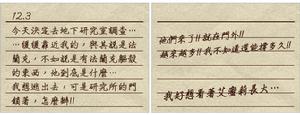 12.3
今天決定去地下研究室調查…
…緩緩靠近我的，與其說是法
蘭克，不如說是有法蘭克軀殼
的東西，他到底是什麼…
我想逃出去，可是研究所的門
鎖著，怎麼辦!!
他們來了!!就在門外!!
越來越多!!我不知道還能撐多久!!
我好想看著艾蜜莉長大…